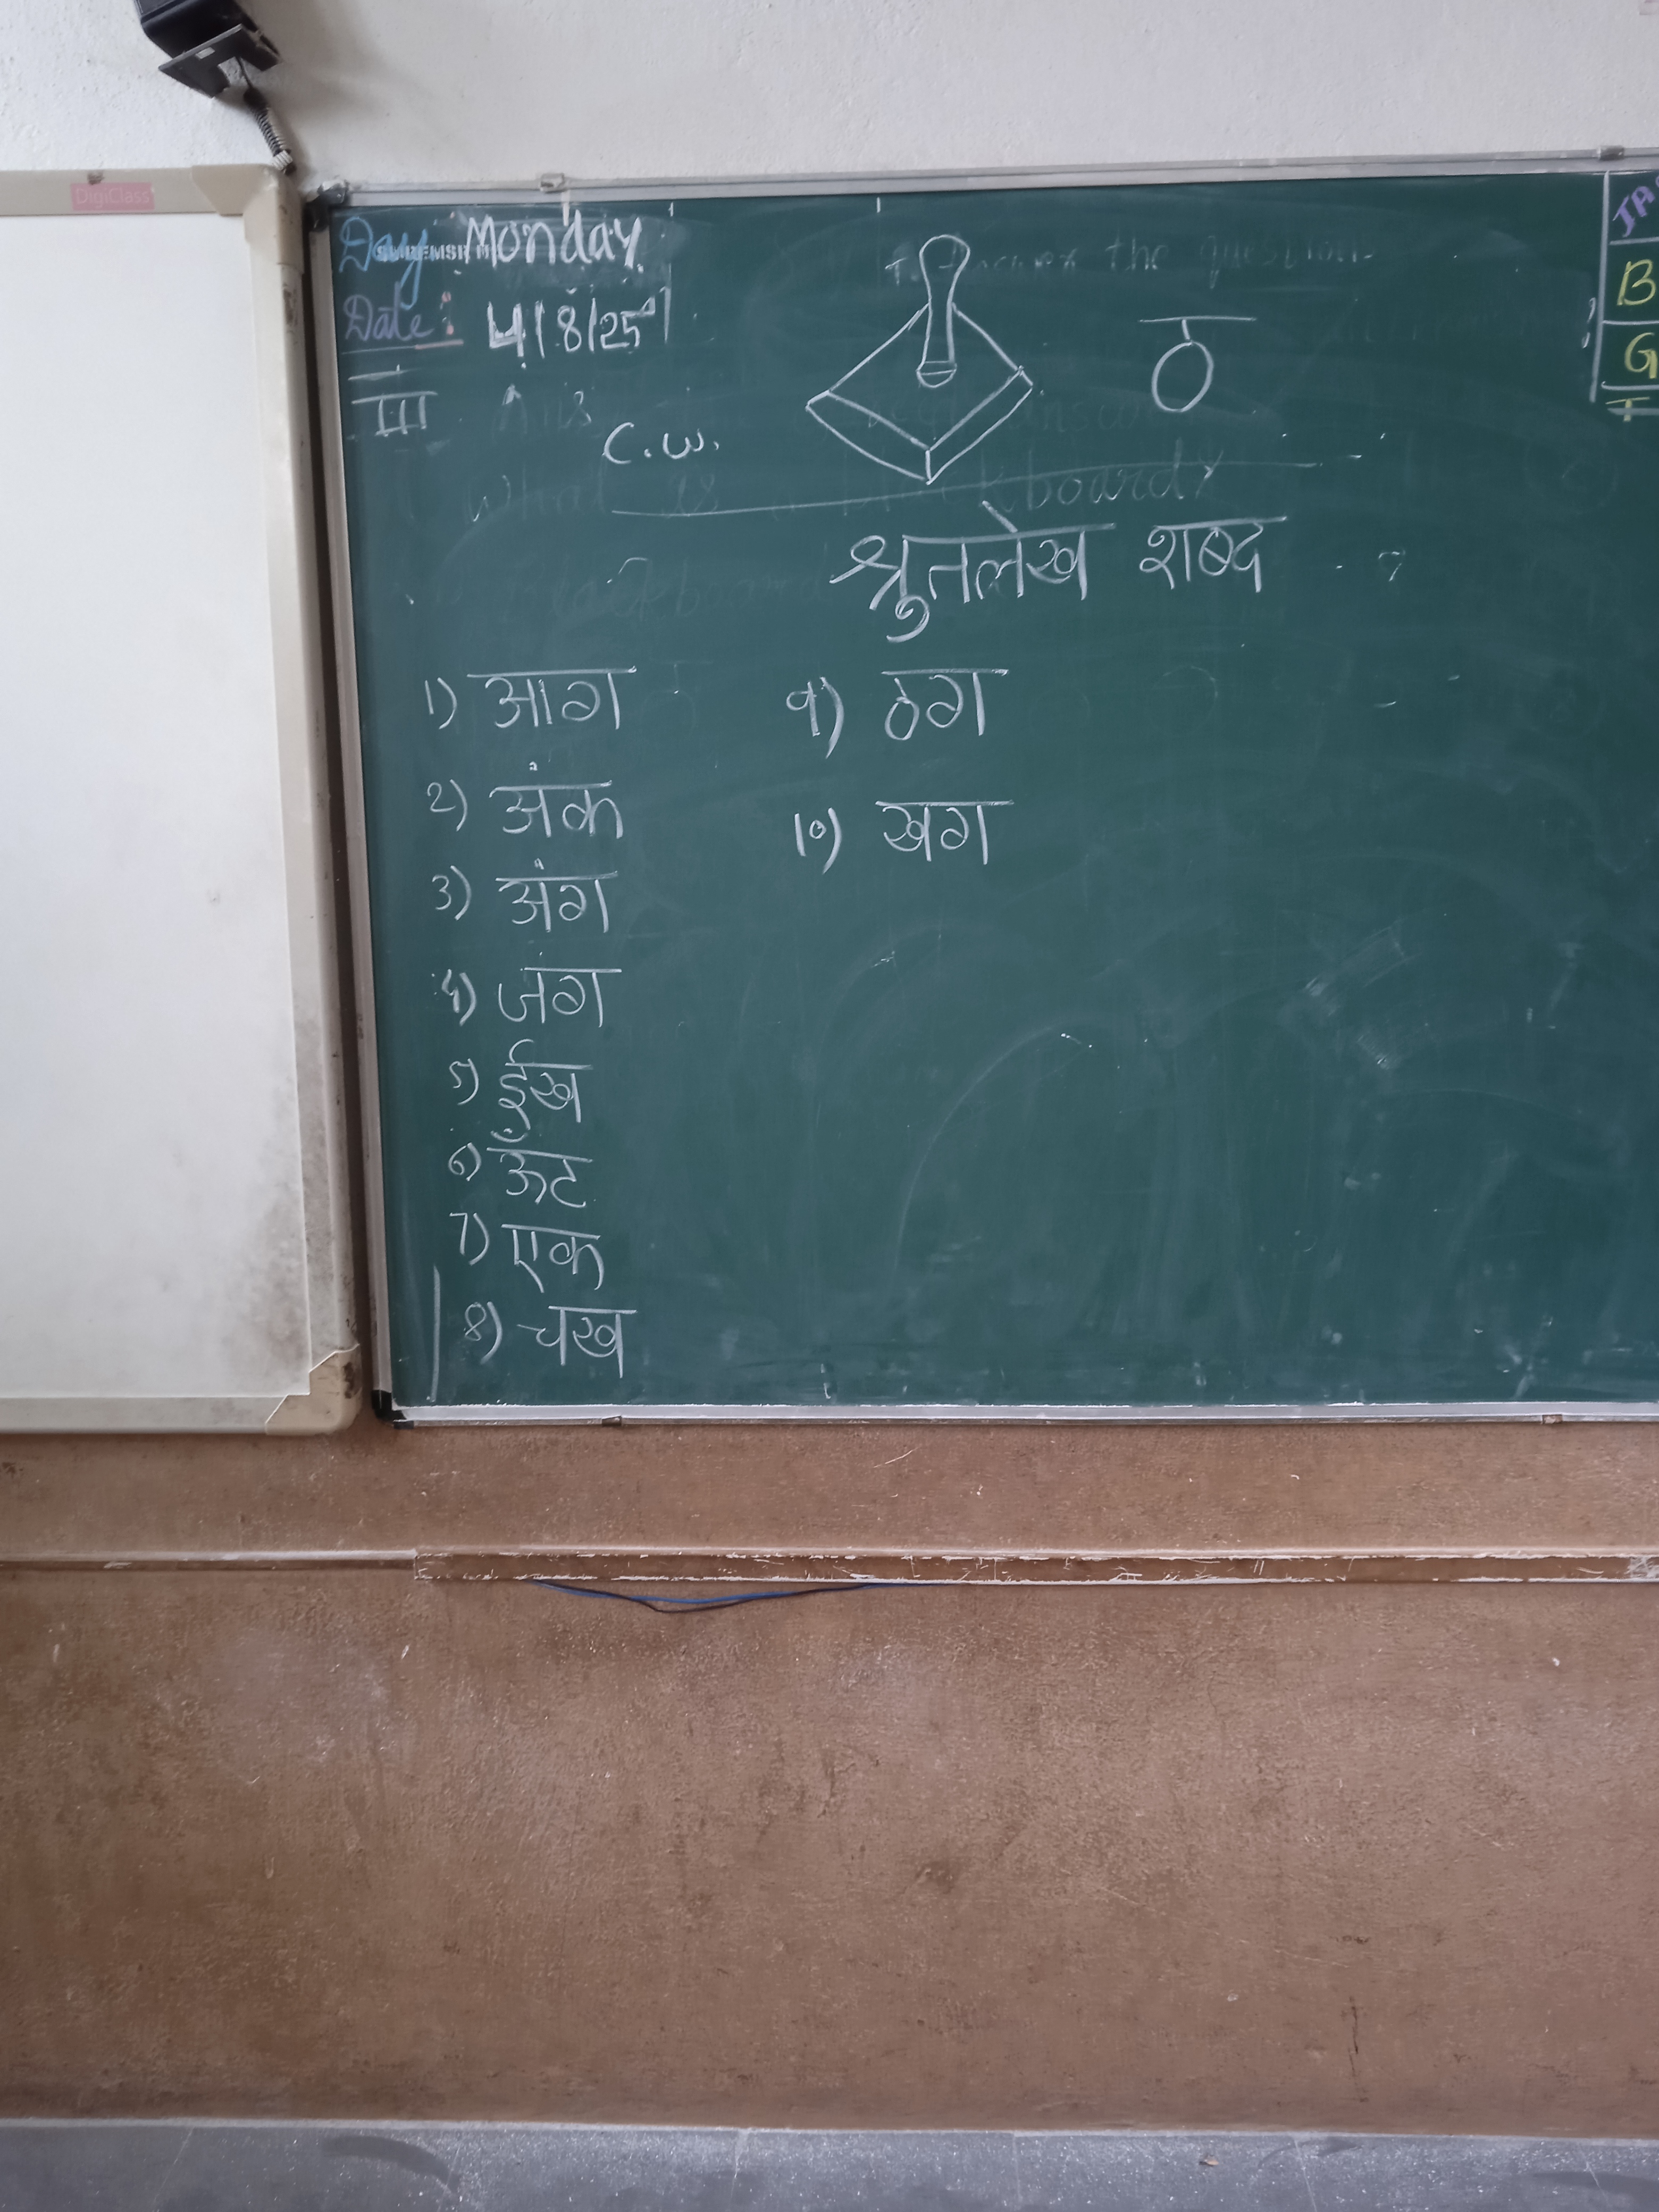 DigiClass
Day Monday
Date: 4/8/25
III
C.W.
ठ
श्रुतलेख शब्द
1) आग
2) अंक
3) अंग
4) जंग
5) ईख
6) ऊँट
7) एक
8) चख
9) ठग
10) खग
B
G
T